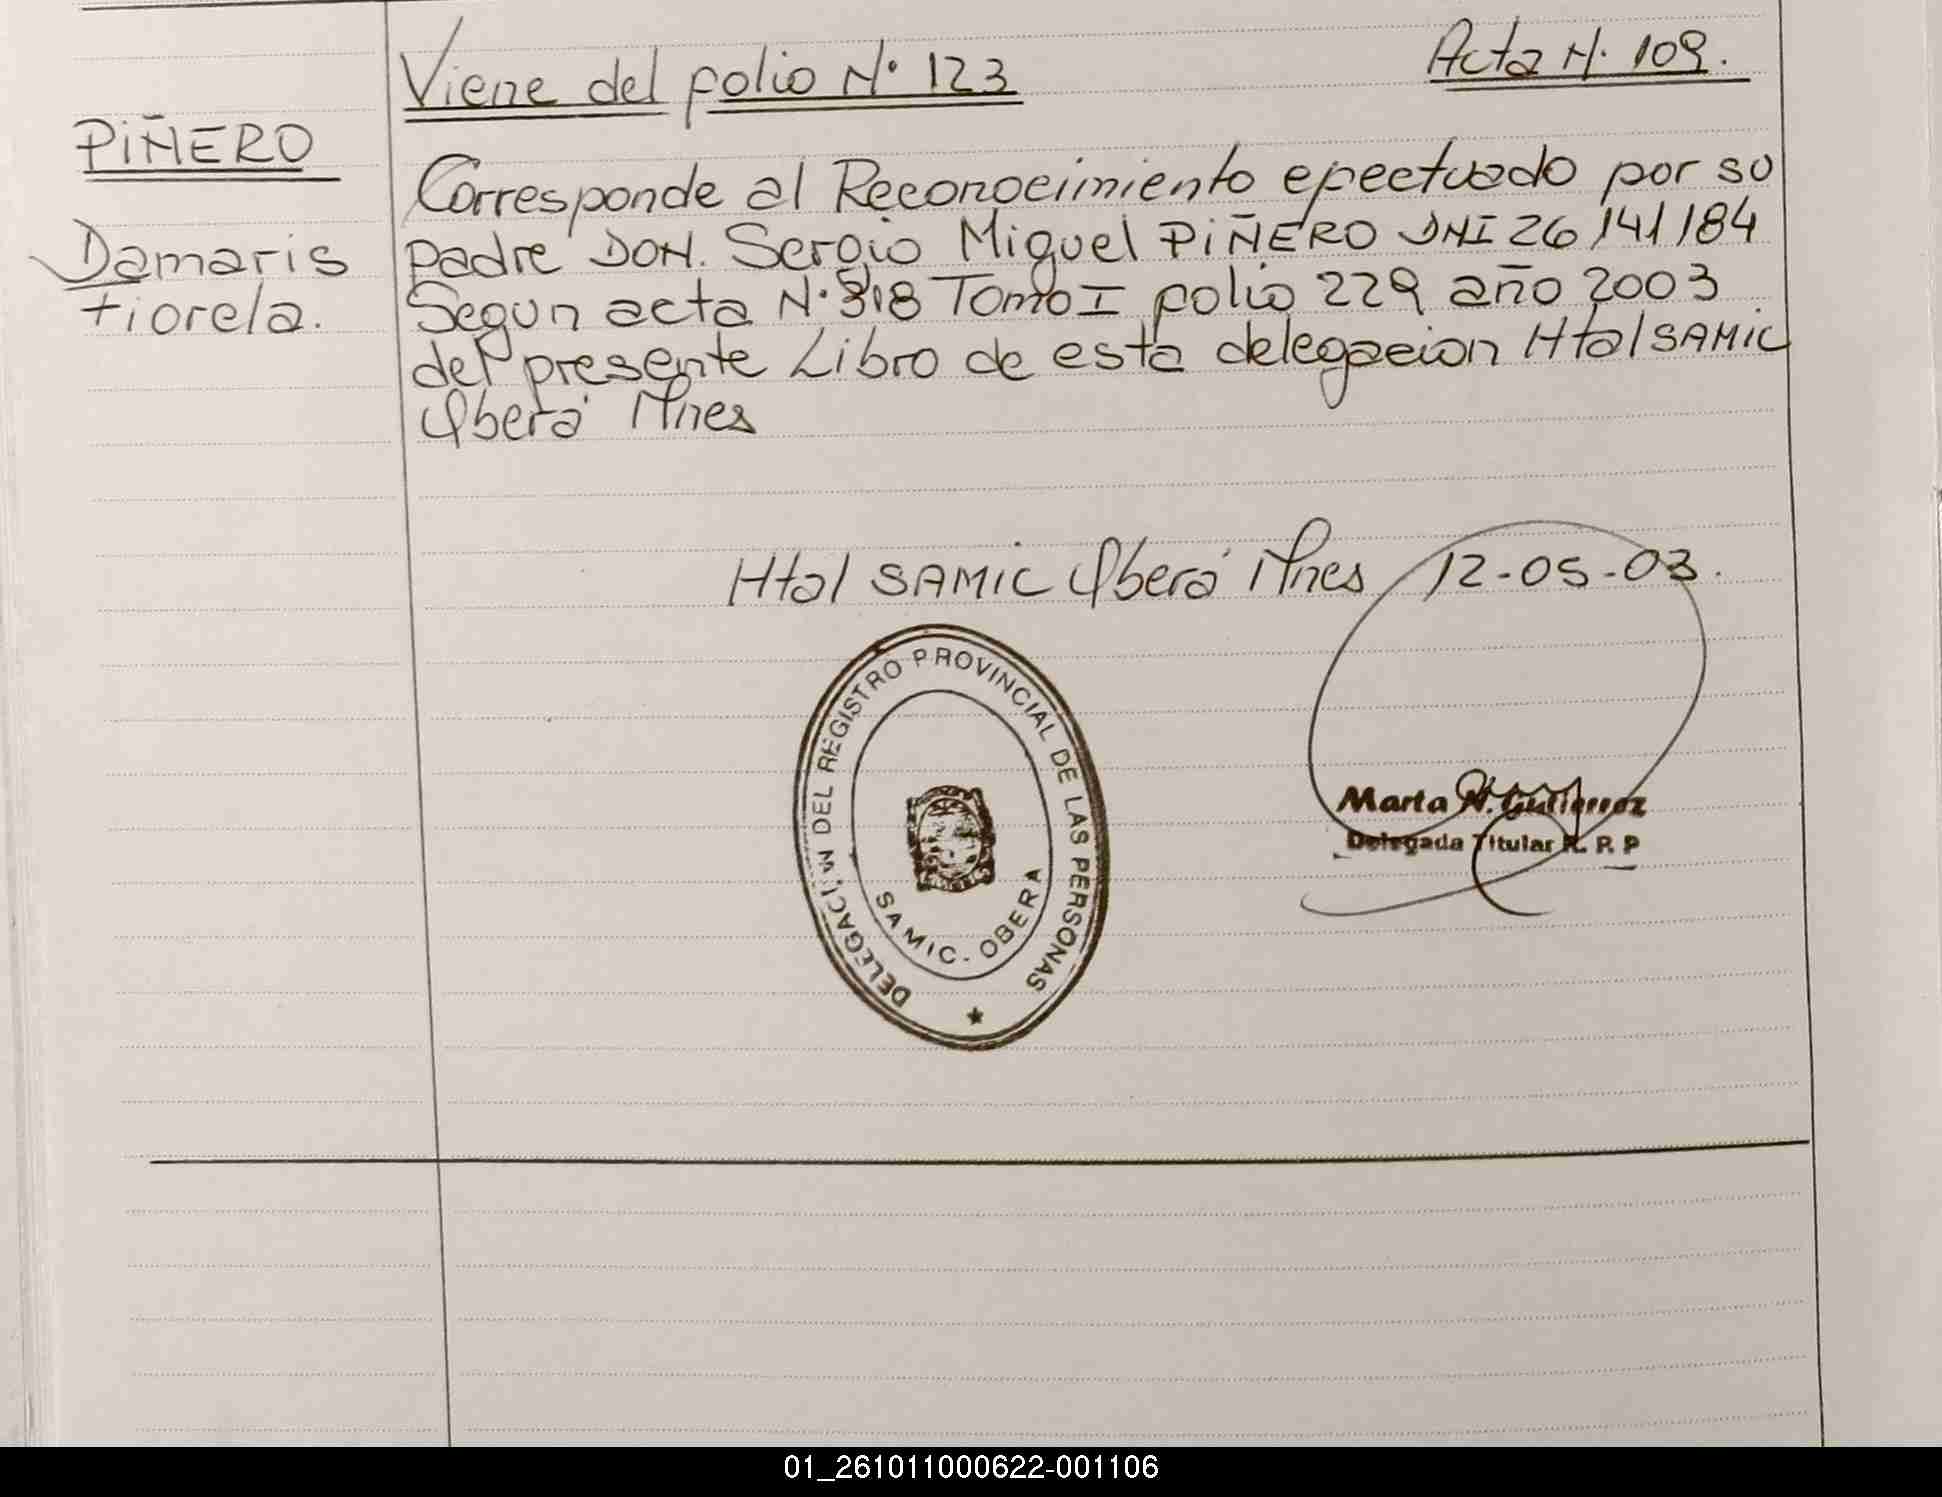 Viene del folio N° 123
Acta N. 109.
PIÑERO
Damaris
Fiorela.
Corresponde al Reconocimiento efectuado por su
padre DON. Sergio Miguel PIÑERO DNI 26141184
Segun acta N° 318 Tomo I folio 229 año 2003
del presente Libro de esta delegacion Htal SAMIC
Oberá Mnes
Htal SAMIC Oberá Mnes 12-05-03.
DELEGACION DEL REGISTRO PROVINCIAL DE LAS PERSONAS
SAMIC - OBERA
Marta N. Gutierrez
Delegada Titular R. P. P
01_261011000622-001106